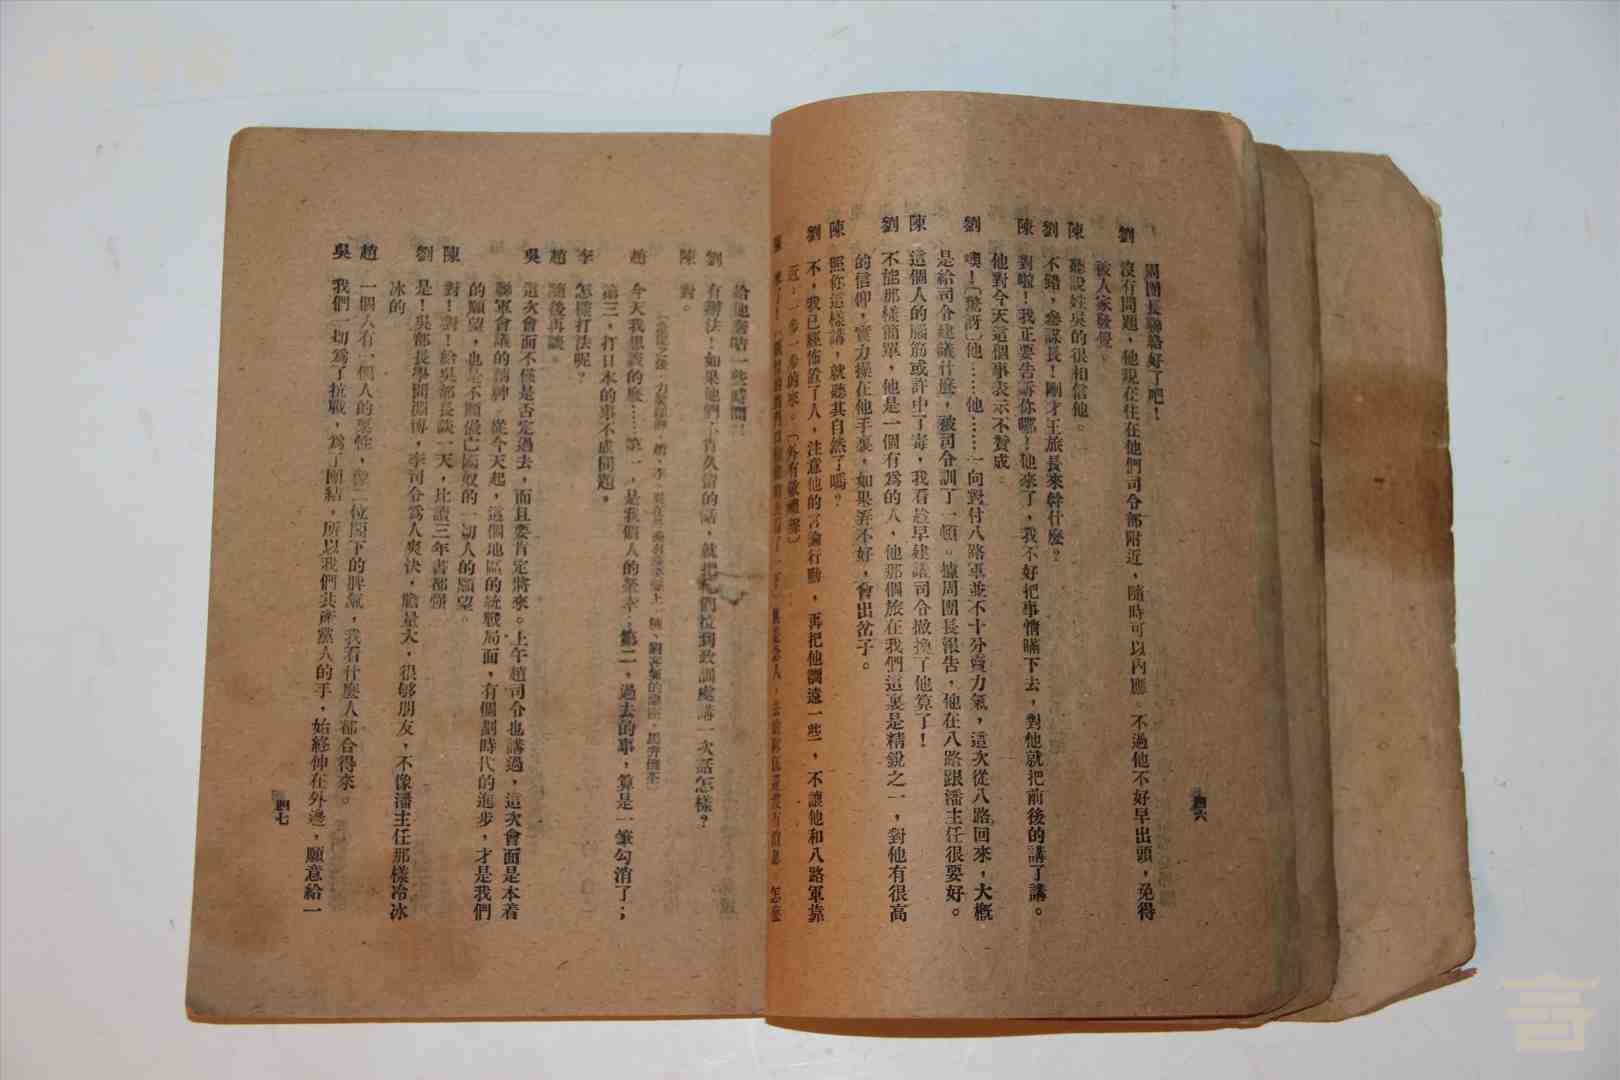 周團長聯絡好了吧！
劉 沒有問題，他現在住在他們司令部附近，隨時可以內應。不過他不好早出頭，免得
被人家發覺。
陳 聽說姓吳的很相信他。
劉 不錯，參謀長！剛才王旅長來幹什麼？
陳 對啦！我正要告訴你哪！他來了，我不好把事情瞞下去，對他就把前後的講了講。
他對今天這個事表示不贊成。
劉 噢！（驚訝）他……他……一向對付八路軍並不十分賣力氣，這次從八路回來，大概
是給司令建議什麼，被司令訓了一頓。據周團長報告，他在八路跟潘主任很要好。
陳 這個人的腦筋或許中了毒，我看趁早建議司令撤換了他算了！
劉 不能那樣簡單，他是一個有爲的人，他那個旅在我們這裏是精銳之一，對他有很高
的信仰，實力操在他手裏，如果弄不好，會出岔子。
陳 照你這樣講，就聽其自然了嗎？
劉 不，我已經佈置了人，注意他的言論行動，再把他調遠一些，不讓他和八路軍靠
近。一步一步的來。（外有敬禮聲）
四六
給他奢咭一些時間！
劉 有辦法！如果他們不肯久留的話，就把他們拉到政訓處講一次話怎樣？
陳 對。
趙 今天我想談的麽……第一，是我個人的榮幸；第二，過去的事，算是一筆勾消了；
第三，打日本的事不成問題。
李 怎樣打法呢？
趙 隨後再談。
吳 這次會面不僅是否定過去，而且要肯定將來。上午趙司令也講過，這次會面是本着
聯軍會議的精神。從今天起，這個地區的統戰局面，有個劃時代的進步，才是我們
的願望，也是不願做亡國奴的一切人的願望。
陳 對！對！給吳部長談一天，比讀三年書都强。
劉 是！吳部長學問淵博，李司令爲人爽快，膽量大，很够朋友，不像潘主任那樣冷冰
冰的。
趙 一個人有一個人的禀性，像二位閣下的脾氣，我看什麼人都合得來。
吳 我們一切爲了抗戰，爲了團結，所以我們共產黨人的手，始終伸在外邊，願意給一
四七